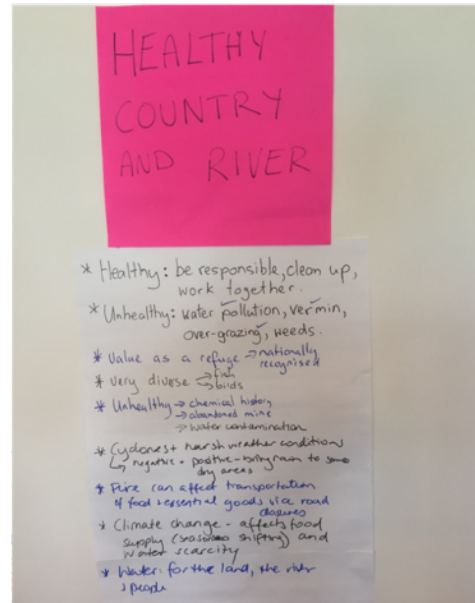 HEALTHY
COUNTRY
AND RIVER
* Healthy: be responsible, clean up,
work together.
* Unhealthy: water pollution, vermin,
over-grazing, weeds.
* Value as a refuge → nationally
recognised
* very diverse → fish
→ birds
* Unhealthy → chemical history
→ abandoned mine
→ water contamination
* Cyclones + harsh weather conditions
↳ negative + positive - bring rain to some
dry areas
* Fire can affect transportation
of food + essential goods road
closures
* Climate change - affects food
supply (seasons shifting) and
water scarcity
* Water: for the land, the river
people